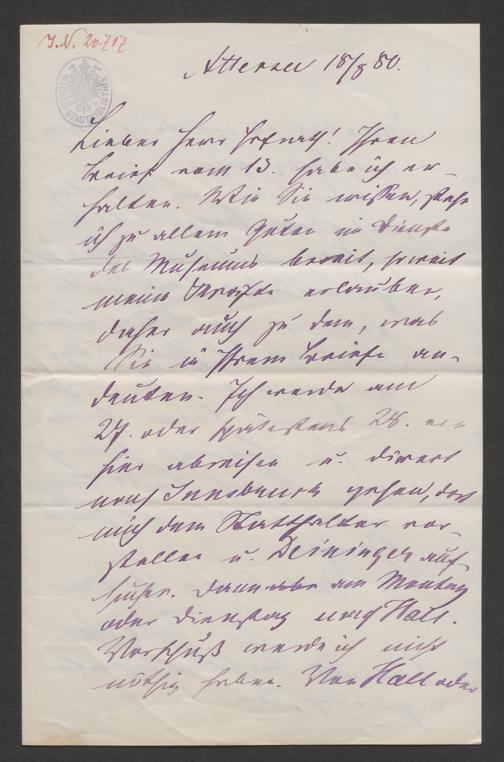 J.N. 20.717
Attersee 18/8 80.
Lieber Herr Hofrath! Ihren
Brief vom 13. habe ich er-
halten. Wie Sie wissen, stehe
ich zu allem Guten im Dienste
des Museums bereit, soweit
meine Kräfte erlauben,
daher auch zu dem, was
Sie in Ihrem Briefe an-
deuten. Ich werde am
27. oder spätestens 28. von
hier abreisen u. direct
nach Innsbruck gehen, dort
mich dem Statthalter vor-
stellen u. Deininger auf-
suchen. Dann am Montag
oder Dienstag nach Hall.
Vorschuß werde ich nicht
nöthig haben. Von Hall oder